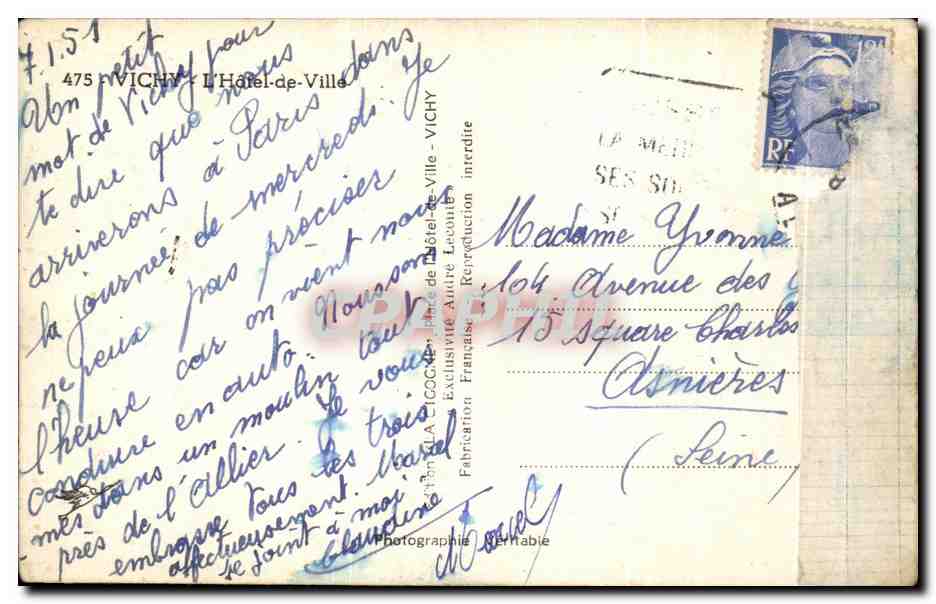 7.1.51
475 - VICHY - L'Hôtel-de-Ville
Un petit
mot de Vichy pour
te dire que nous
arriverons à Paris dans
la journée de mercredi. Je
ne peux pas préciser
l'heure car on vient nous
conduire en auto. Nous som
-mes dans un moulin tout
près de l'Allier. Je vous
embrasse tous les trois
affectueusement. Marcel
se joint à moi
Claudine
Marcel
"LA CIGOGNE", place de l'Hôtel-de-Ville - VICHY
Exclusivité André Leconte
Fabrication Française - Reproduction interdite
Photographie Véritable
12F
RF
LA MEI
SES SO
Madame Yvonne
104 Avenue des
15 square Charles
Asnières
(Seine
CPAPHIL